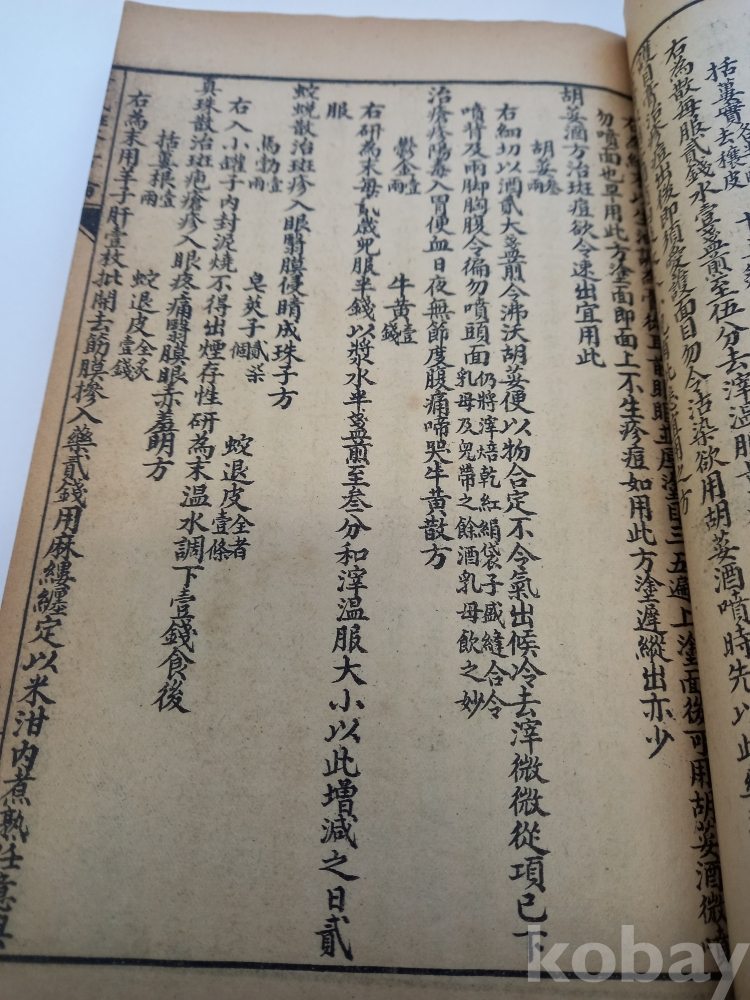 括蔞實去穰皮
右為散每服貳錢水壹盞煎至伍分去滓溫服
護目膏治疹痘出後即須愛護面目勿令沾染欲用胡荽酒噴時先以此
三五遍上塗面後可用胡荽酒微噴
勿噴面也早用此方塗面即面上不生疹痘如用此方塗遲縱出亦少
胡荽酒方治斑痘欲令速出宜用此
胡荽叁兩
右細切以酒貳大盞煎令沸沃胡荽便以物合定不令氣出候冷去滓微微從項已下
噴背及兩脚胸腹令徧勿噴頭面仍將滓焙乾紅絹袋子盛縫合令
乳母及兒帶之餘酒乳母飲之妙
治瘡疹陽毒入胃便血日夜無節度腹痛啼哭牛黃散方
鬱金壹兩 牛黃壹錢
右研為末每貳歲兒服半錢以漿水半盞煎至叁分和滓溫服大小以此增減之日貳
服
蛇蛻散治斑疹入眼翳膜侵睛成珠子方
馬勃壹兩 皂莢子貳柒個 蛇退皮全者壹條
右入小罐子內封泥燒不得出煙存性研為末溫水調下壹錢食後
真珠散治斑疱瘡疹入眼疼痛翳膜眼赤羞明方
括蔞根壹兩 蛇退皮全炙壹錢
右為末用羊子肝壹枚批開去筋膜摻入藥貳錢用麻縷纏定以米泔內煮熟任意與
kobay